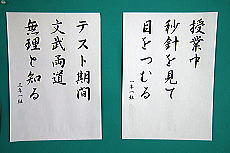 授業中
秒針を見て
目をつむる
一年一組
テスト期間
文武両道
無理と知る
三年一組